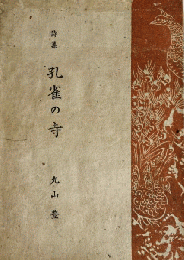 詩集
孔雀の寺
丸山 薫